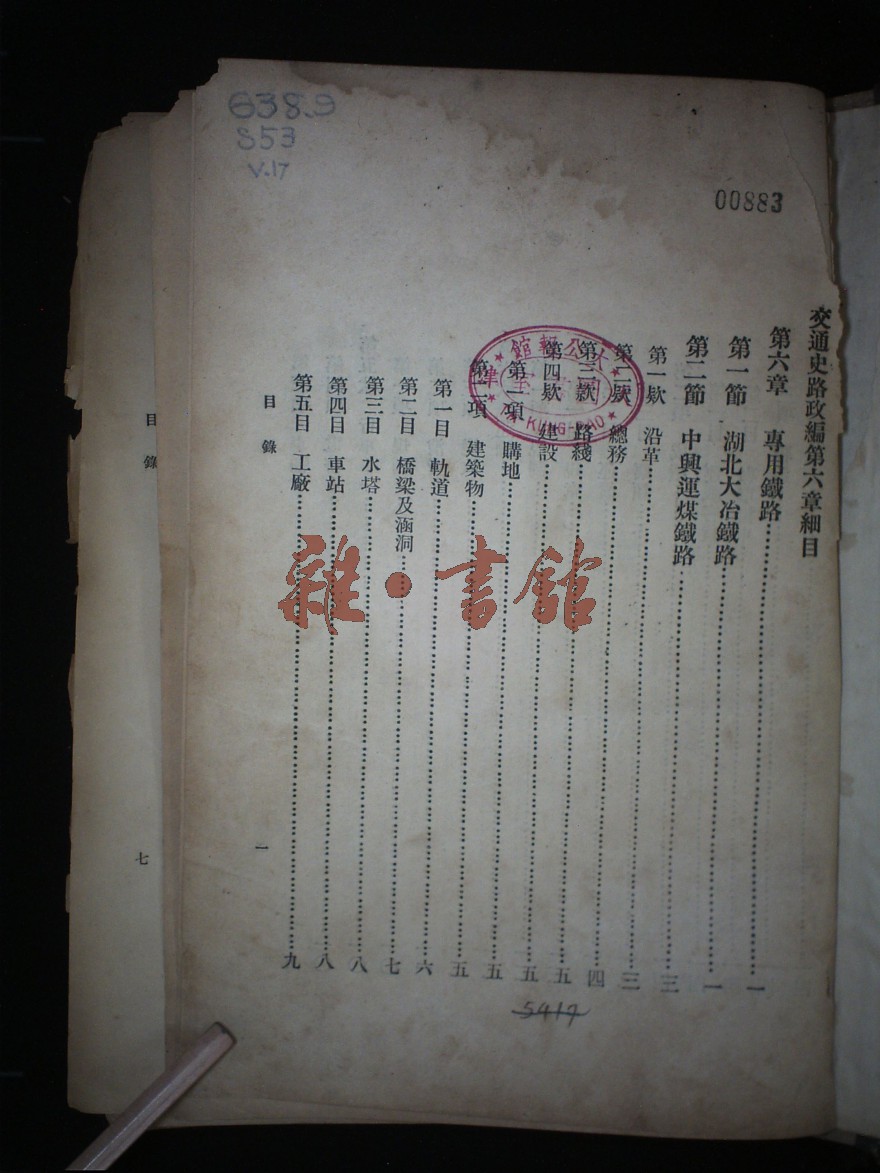 638.9
S53
V.17
00883
交通史路政編第六章細目
第六章 專用鐵路……一
第一節 湖北大冶鐵路……一
第二節 中興運煤鐵路……三
第一欵 沿革……三
第二欵 總務……四
第三欵 路綫……五
第四欵 建設……五
第一項 購地……五
第二項 建築物……五
第一目 軌道……六
第二目 橋梁及涵洞……七
第三目 水塔……八
第四目 車站……八
第五目 工廠……九
目錄
一
目錄
七
大公報館
津
KUNG-PAO
雜·書館
5417